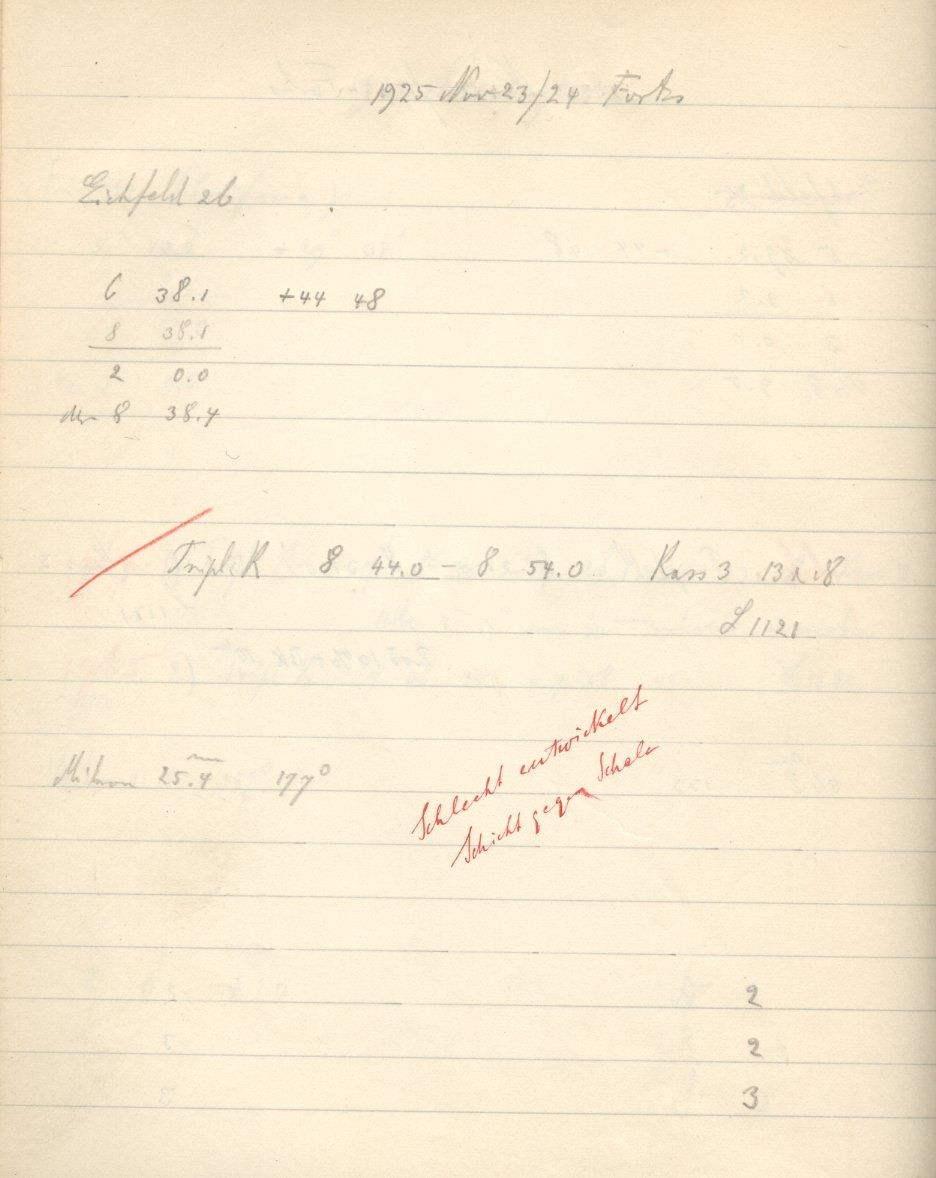 1925 Nov 23/24 Forts
Eichfeld 26
6 38.1 +44 48
8 38.1
2 0.0
8 38.4
Triplet 8 44.0 - 8 54.0 Kass 3 13 x 18
L 1121
25.4 mm 177°
Schlecht entwickelt
Schicht gegen Schale
2
2
3